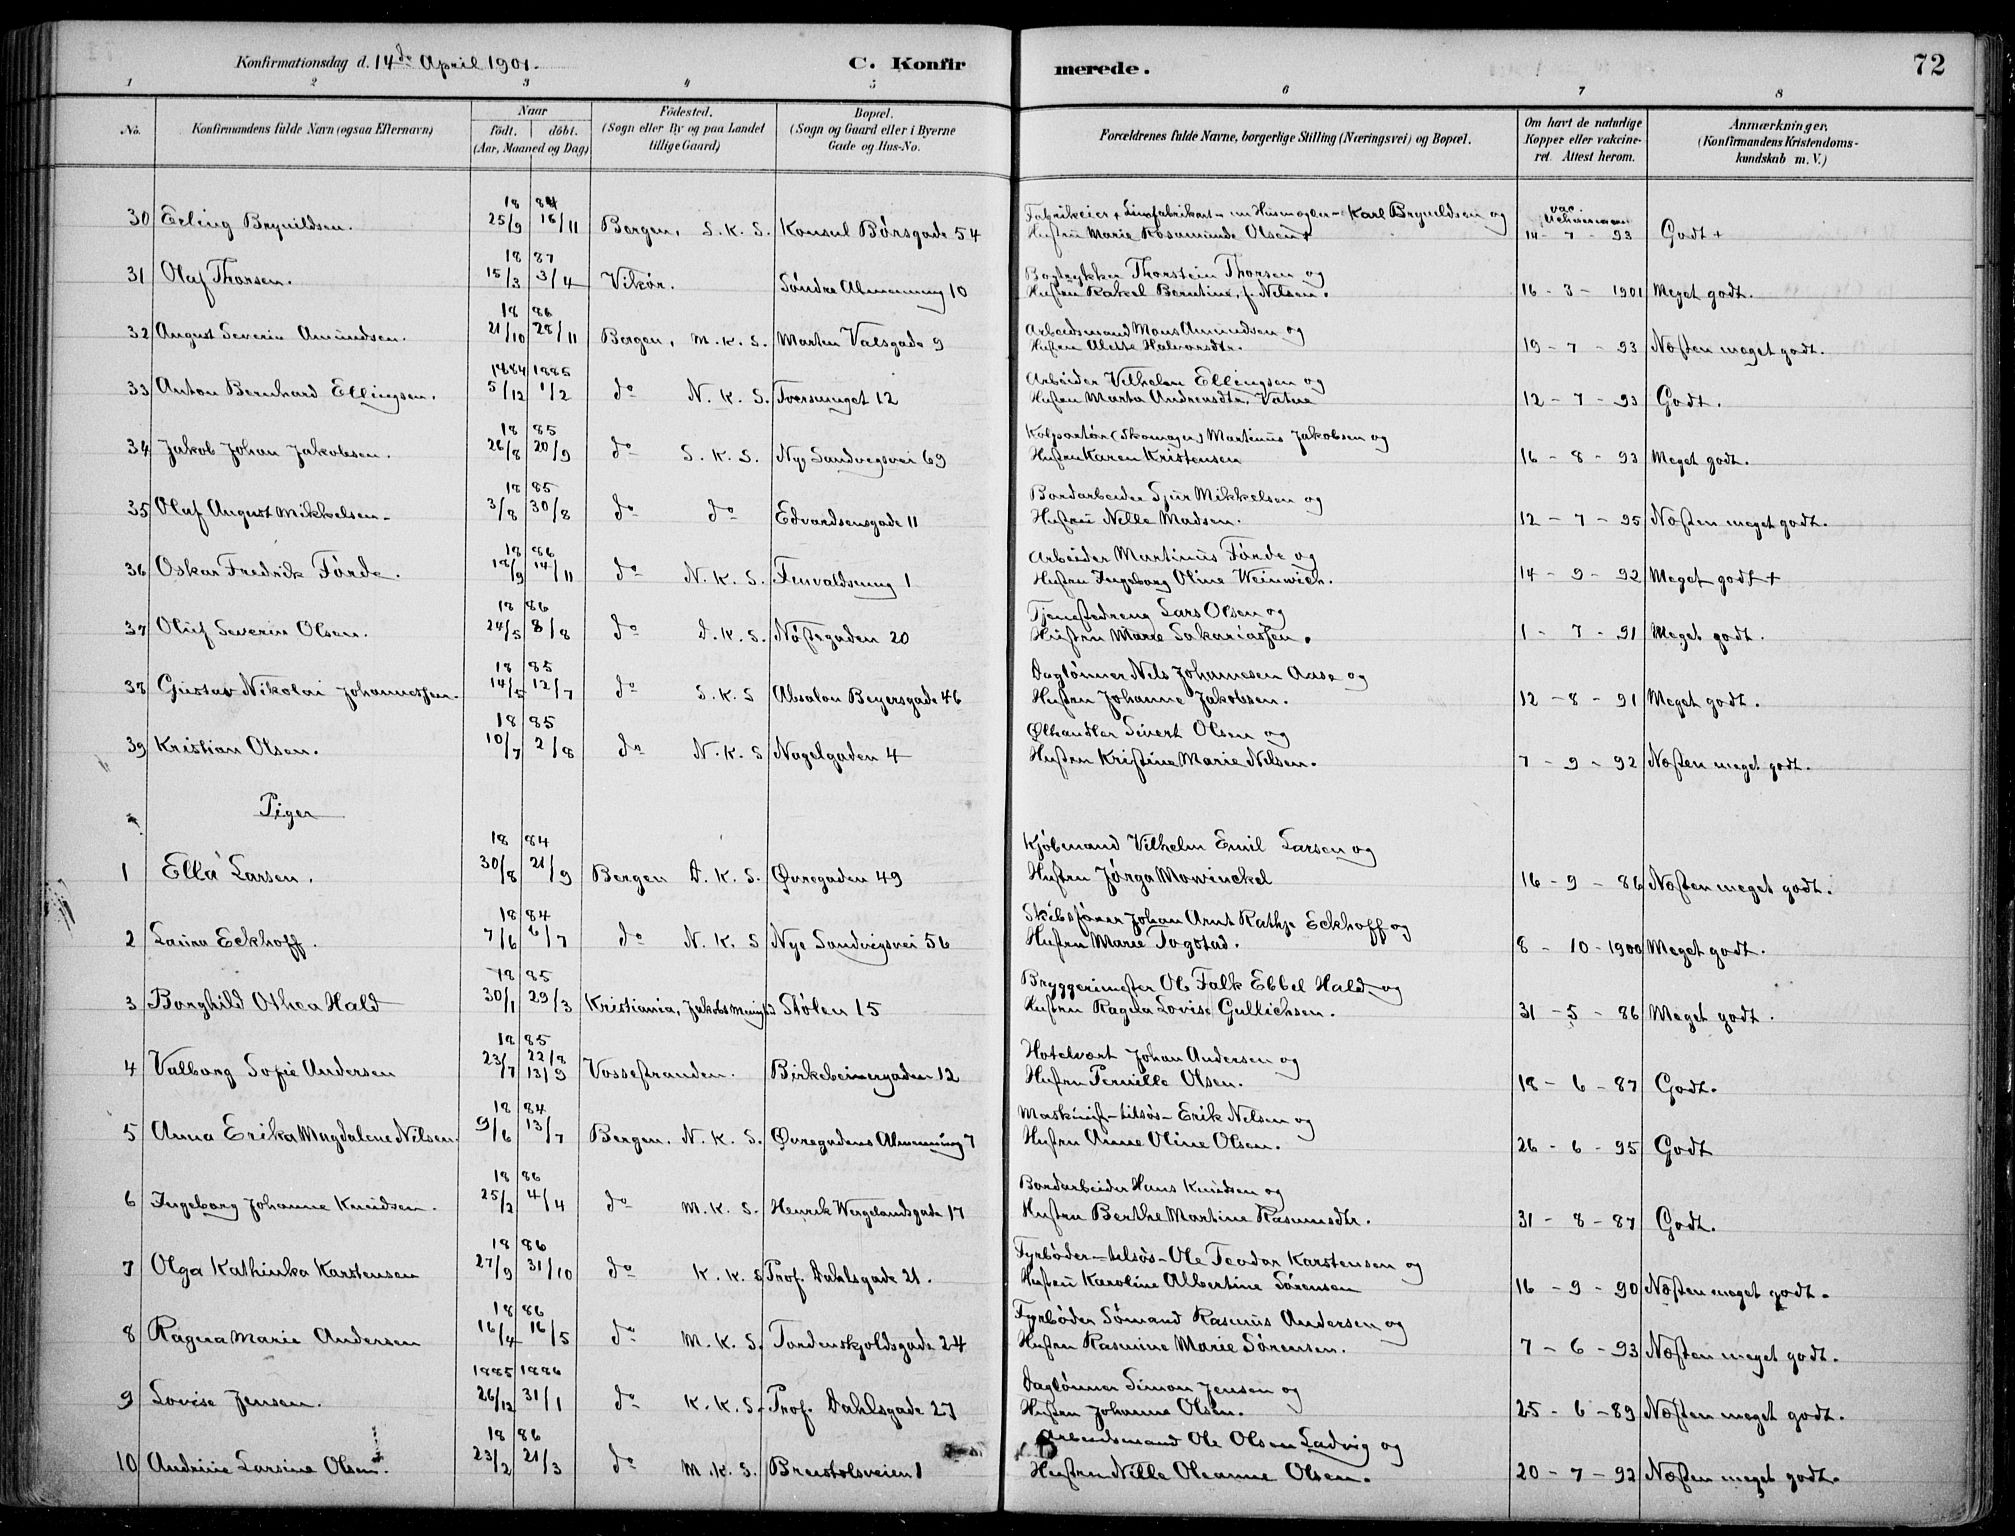 Konfirmationsdag d. 14de April 1901.
C. Konfirmerede.
72
1 2 3 4 5 6 7 8
No. Konfirmandens fulde Navn (ogsaa Efternavn) Naar födt. döbt. (Aar, Maaned og Dag) Födested. (Sogn eller By og paa Landet tillige Gaard) Bopæl. (Sogn og Gaard eller i Byerne Gade og Hus-No. Forældrenes fulde Navne, borgerlige Stilling (Næringsvei) og Bopæl. Om havt de naturlige Kopper eller vakcineret. Attest herom. Anmærkninger. (Konfirmandens Kristendomskundskab m. V.)
30 Erling Brynildsen. 1884 25/9 16/11 Bergen, S. K. S. Konsul Börsgade 54 Karl Brynildsen og Hustru Marie Rosamunde Olsen + vac. 14 - 7 - 93 Godt +
31 Olaf Thorsen. 1887 15/3 3/4 Vikör. Söndre Almenning 10 Bogtrykker Thorstein Thorsen og Hustru Rakel Berntine, f. Nilsen. 16 - 3 - 1901 Meget godt.
32 August Severin Amundsen. 1886 21/10 28/11 Bergen, M. K. S. Marten Valsgade 9 Arbeidsmand Mons Amundsen og Hustru Alette Halvorsdtr. 19 - 7 - 93 Næsten meget godt.
33 Anton Bernhard Ellingsen. 1884 1885 5/12 1/2 do N. K. S. Tversmuget 12 Arbeider Vilhelm Ellingsen og Hustru Marta Andreasdtr. Vatne 12 - 7 - 93 Godt.
34 Jakob Johan Jakobsen. 1885 26/8 20/9 do S. K. S. Nye Sandvigsvei 69 Kolportör (Skomager) Martinus Jakobsen og Hustru Karen Kristensen 16 - 8 - 93 Meget godt.
35 Olaf August Mikkelsen 1885 3/8 30/8 do do Edvardsensgade 11 Bordarbeider Sjur Mikkelsen og Hustru Nille Madsen. 12 - 7 - 95 Næsten meget godt.
36 Oskar Fredrik Förde. 1886 18/9 14/11 do N. K. S. 1 Arbeider Martinus Förde og Hustru Ingeborg Oline Weinwich. 14 - 9 - 92 Meget godt +
37 Oluf Severin Olsen. 1886 24/5 8/8 do D. K. S. Nöstegaden 20 Tjenestedreng Lars Olsen og Hustru Marie Sakariassen. 1 - 7 - 91 Meget godt.
38 Gustav Nikolai Johannessen. 1885 14/5 12/7 do S. K. S Absalon Beyersgade 46 Daglönner Nils Johannesen Aase og Hustru Johanne Jakobsen. 12 - 8 - 91 Meget godt.
39 Kristian Olsen. 1885 10/7 2/8 do N. K. S Nagelgaden 4 Ølhandler Sivert Olsen og Hustru Kristine Marie Nilsen. 7 - 9 - 92 Næsten meget godt.
Piger
1 Ella Larsen. 1884 30/8 21/9 Bergen D. K. S. Øvregaden 49 Kjöbmand Vilhelm Emil Larsen og Hustru Jörga Mowinckel 16 - 9 - 86 Næsten meget godt.
2 Laura Eckhoff. 1884 7/6 6/7 do N. K. S Nye Sandvigsvei 56 Skibsförer Johan Arnt Rathje Eckhoff og Hustru Marie Togstad. 8 - 10 - 1900 Meget godt.
3 Borghild Othea Hald 1885 30/1 29/3 Kristiania, Jakobs Menighd Stölen 15 Bryggerimester Ole Falk Ebbel Hald og Hustru Ragna Lovise Gullichsen. 31 - 5 - 86 Meget godt.
4 Valborg Sofie Andersen 1885 23/7 22/8 13/9 Vossestranden. Birkebeinergaden 12 Hotelvært Johan Andersen og Hustru Pernille Olsen. 18 - 6 - 87 Godt.
5 Anna Erika Magdalene Nilsen. 1884 9/6 13/7 Bergen. N. K. S. Øvregadens Almenning 7 Maskinist - tilsös - Erik Nilsen og Hustru Anne Oline Olsen. 26 - 6 - 95 Godt
6 Ingeborg Johanne Knudsen. 1886 25/2 4/4 do M. K. S. Henrik Wergelandsgade 17 Bordarbeider Hans Knudsen og Hustru Berthe Martine Rasmusdtr. 31 - 8 - 87 Godt.
7 Olga Kathinka Karstensen 1886 27/9 31/10 do K. K. S Prof. Dahlsgade 21. Fyrböder - tilsös - Ole Teodor Karstensen og Hustru Karoline Albertine Sörensen 16 - 9 - 90 Næsten meget godt.
8 Ragna Marie Andersen 1886 16/4 16/5 do M. K. S. Tordenskjoldsgade 24 Fyrböder Sömand Rasmus Andersen og Hustru Rasmine Marie Sörensen. 7 - 6 - 93 Næsten meget godt.
9 Lovise Jensen. 1885 1886 26/12 31/1 do K. K. S. Prof. Dahlsgade 27 Daglönner Simon Jensen og Hustru Johanne Olsen. 25 - 6 - 89 Næsten meget godt.
10 Andrine Larsine Olsen. 1886 23/2 21/3 do M. K. S. Breistolsveien 1 Arbeidsmand Ole Olsen Ladvig og Hustru Nille Oleanne Olsen. 20 - 7 - 92 Næsten meget godt.